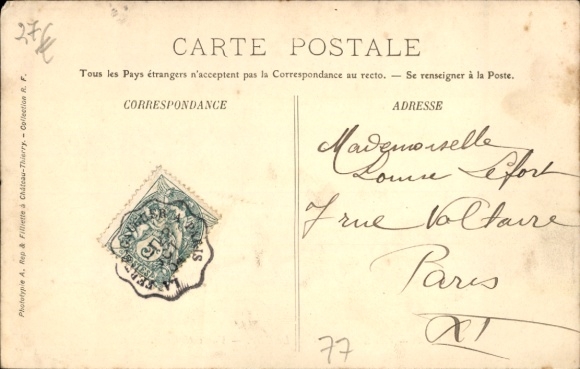 27
CARTE POSTALE
Tous les Pays étrangers n'acceptent pas la Correspondance au recto. — Se renseigner à la Poste.
CORRESPONDANCE
ADRESSE
Mademoiselle
Louise Lefort
7 rue Voltaire
Paris
XI
5
A PARIS
77
Phototypie A. Rep & Filliette à Château-Thierry. - Collection R. F.